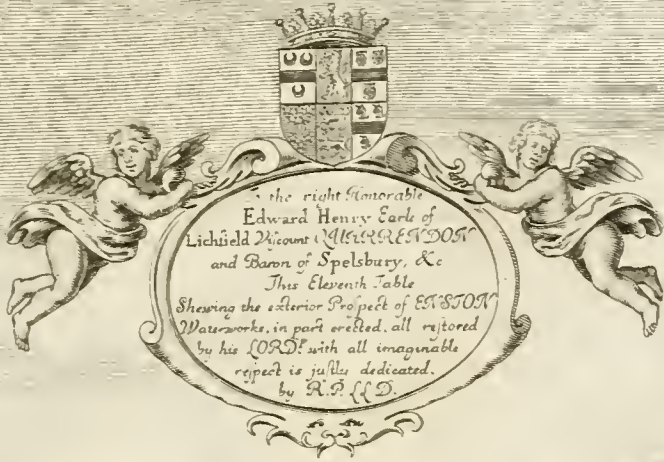 the right Honorable
Edward Henry Earle of
Lichfield Viscount QUARRENDON
and Baron of Spelsbury, &c
This Eleventh Table
Shewing the exterior Prospect of ENSTON
Waterworks, in part erected, all restored
by his LORD.P with all imaginable
respect is justly dedicated.
by R.P. LL D.